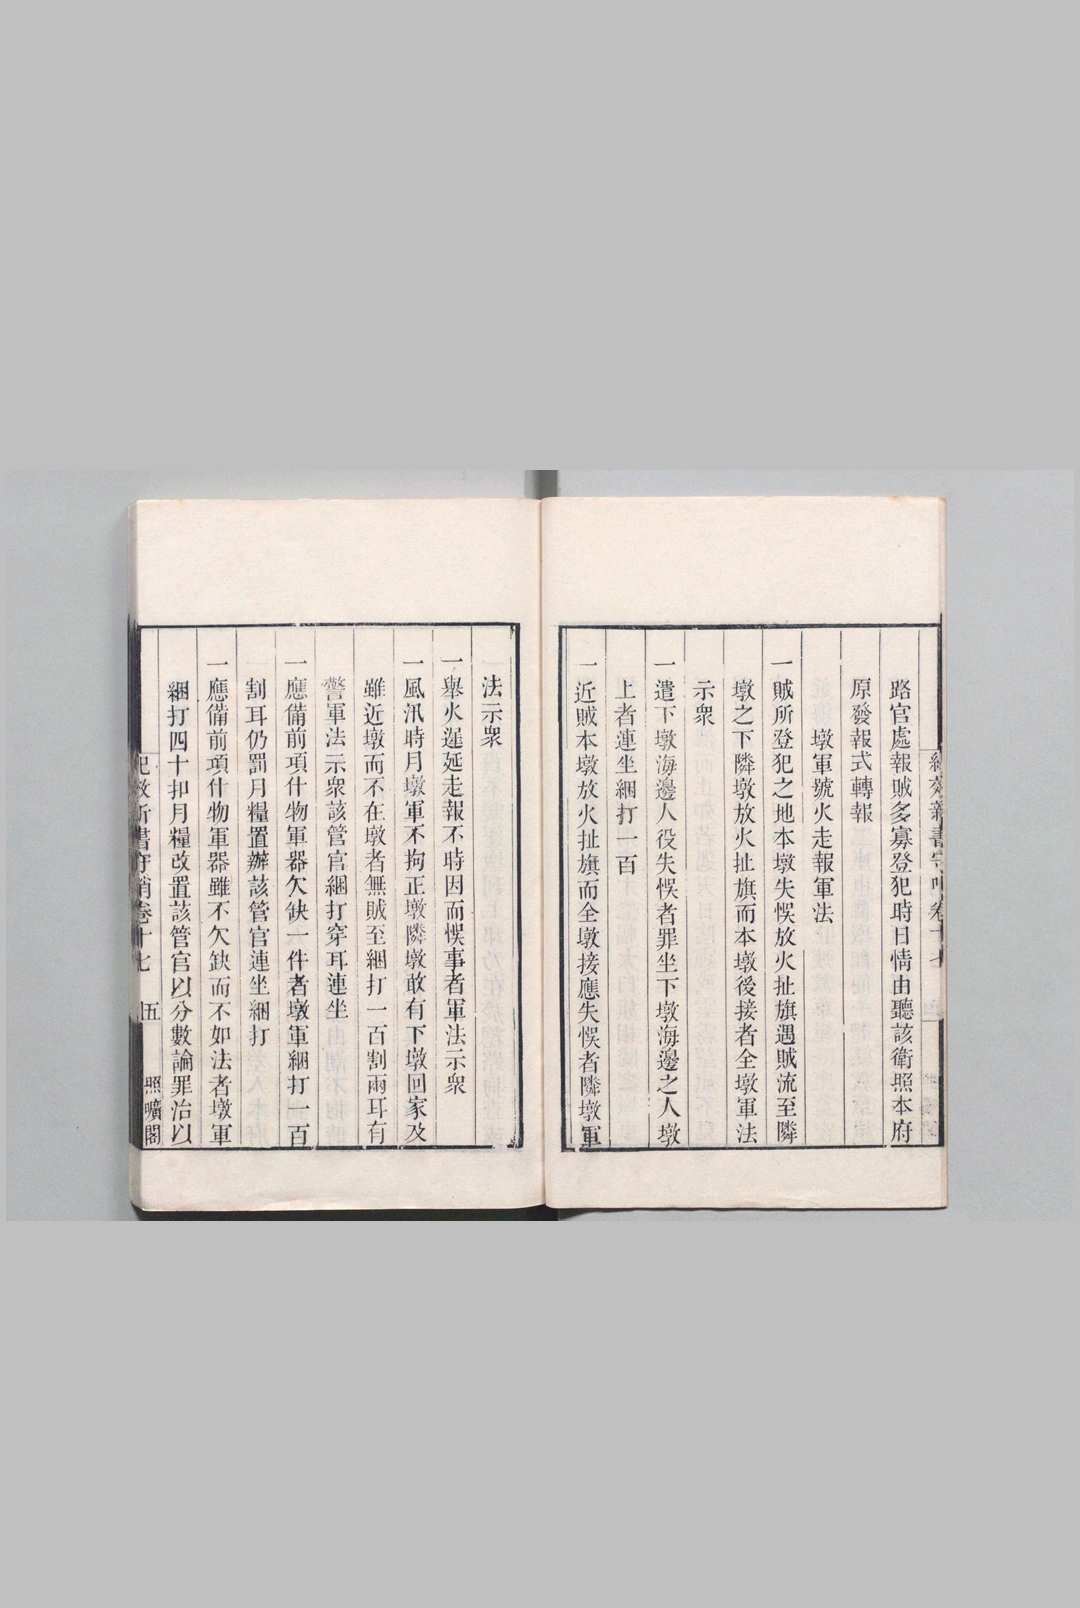 路官處報賊多寡登犯時日情由聽該衛照本府
原發報式轉報
墩軍號火走報軍法
一賊所登犯之地本墩失悞放火扯旗遇賊流至隣
墩之下隣墩放火扯旗而本墩後接者全墩軍法
示衆
一遣下墩海邊人役失悞者罪坐下墩海邊之人墩
上者連坐綑打一百
一近賊本墩放火扯旗而全墩接應失悞者隣墩軍
法示衆
一舉火遲延走報不時因而悞事者軍法示衆
一風汛時月墩軍不拘正墩隣墩敢有下墩回家及
雖近墩而不在墩者無賊至綑打一百割兩耳有
警軍法示衆該管官綑打穿耳連坐
一應備前項什物軍器欠缺一件者墩軍綑打一百
割耳仍罰月糧置辦該管官連坐綑打
一應備前項什物軍器雖不欠缺而不如法者墩軍
綑打四十扣月糧改置該管官以分數論罪治以
卷十七
五
照曠閣